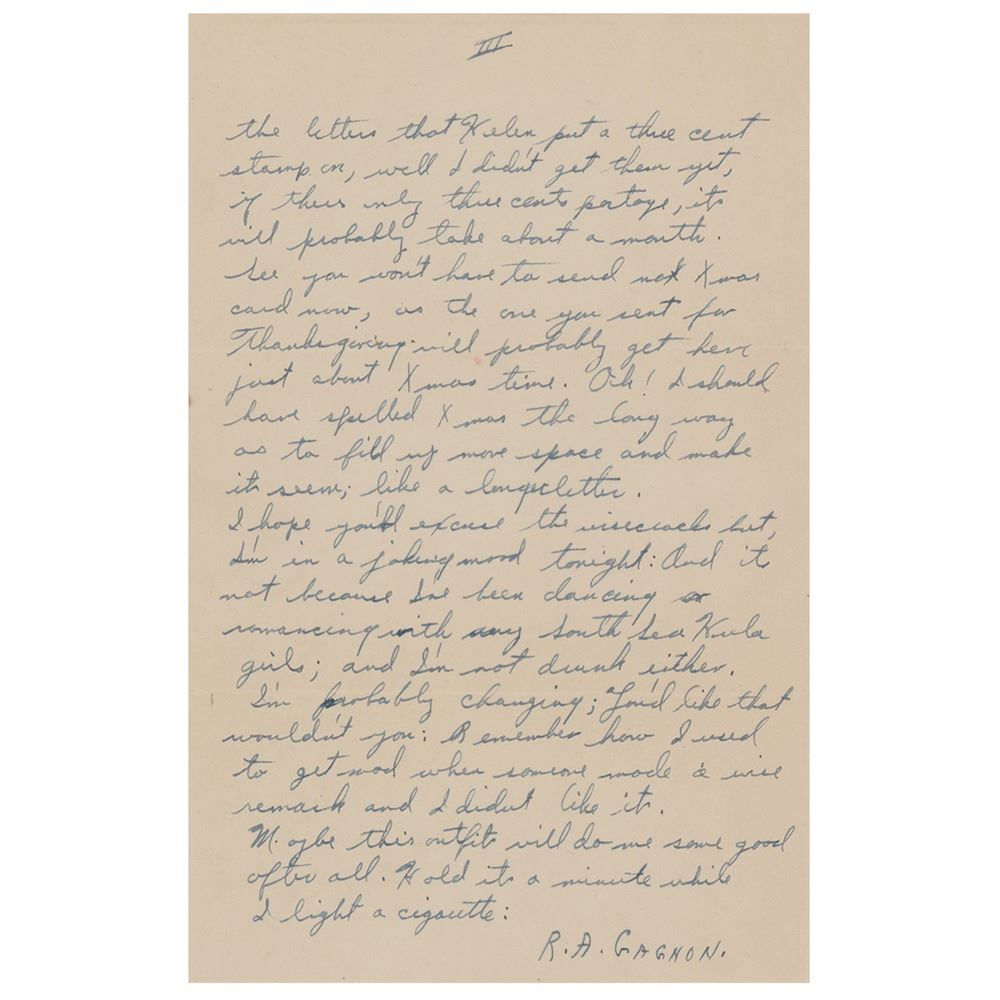 III
the letters that Helen put a three cent
stamp on, well I didn't get them yet,
if theirs only three cents postage, its
will probably take about a month.
See you won't have to send Xmas
card now, as the one you sent for
Thanksgiving will probably get here
just about Xmas time. Ooh! I should
have spelled Xmas the long way
as to fill up more space and make
it seem; like a longer letter.
I hope you'll excuse the wisecracks but,
I'm in a joking mood tonight: And it
not because I've been dancing or
romancing with any South Sea Hula
girls; and I'm not drunk either.
I'm probably changing; You'd like that
wouldn't you: Remember how I used
to get mad when someone made a wise
remark and I didn't like it.
Maybe this outfit will do me some good
after all. Hold it a minute while
I light a cigarette:
R.A. GAGNON.